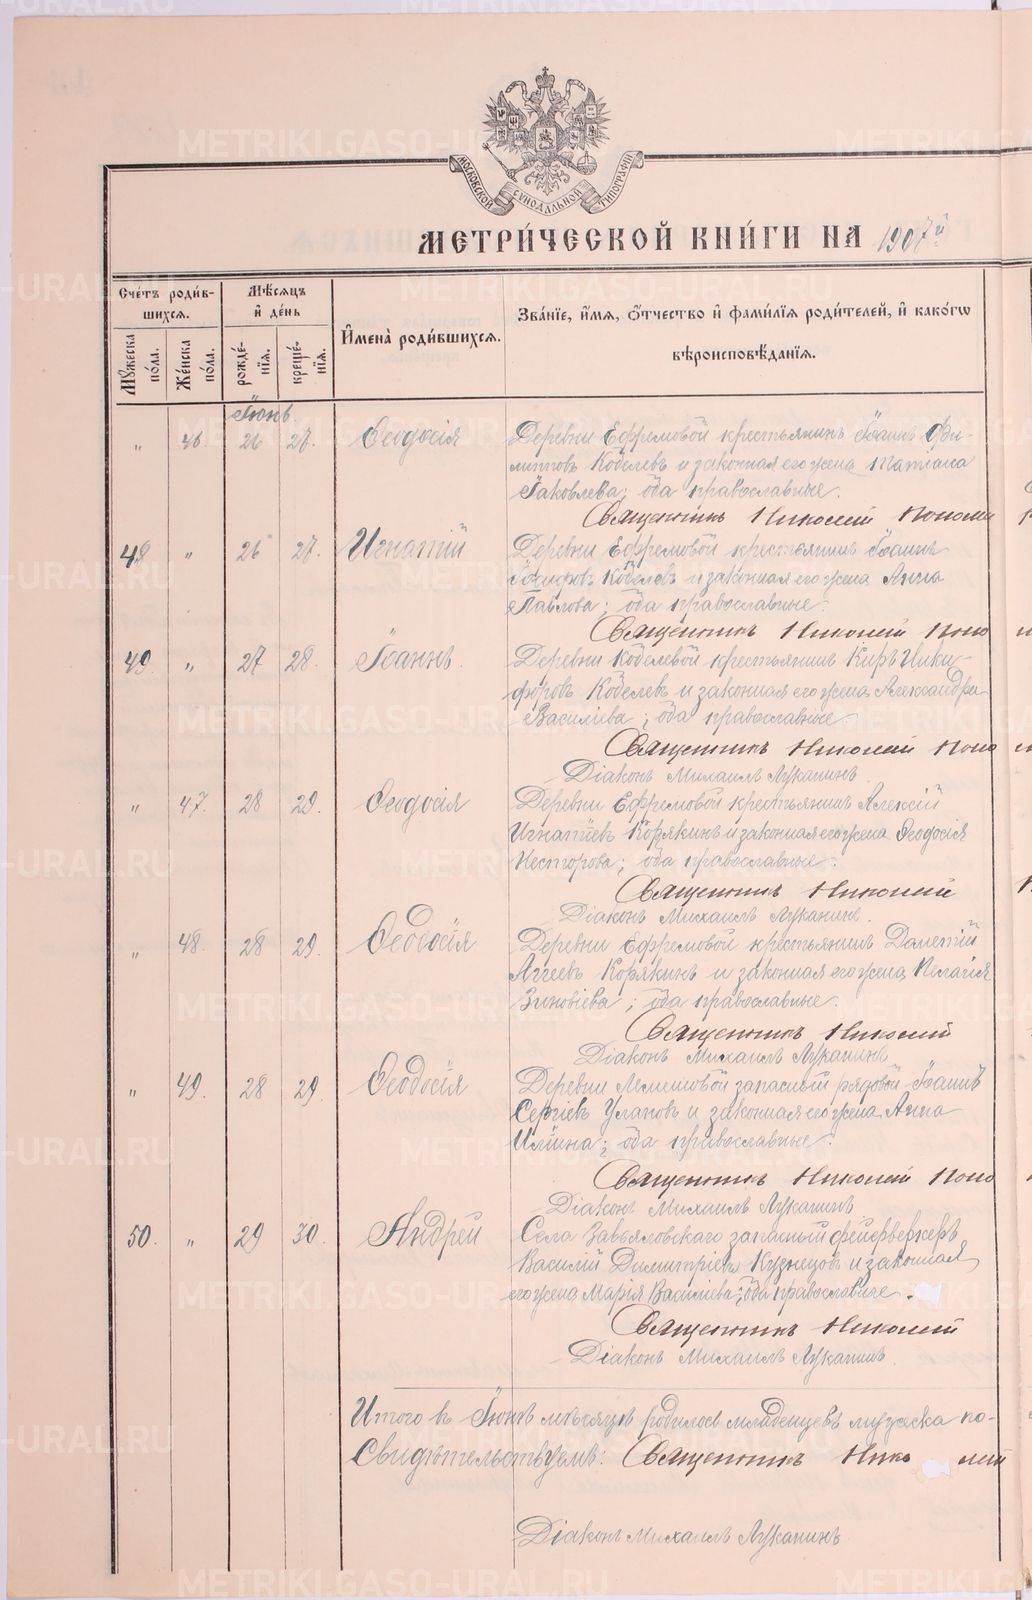 МОСКОВСКОЙ СУНОДАЛЬНОЙ ТИПОГРАФИИ
МЕТРИ́ЧЕСКОЙ КНИ́ГИ НА 1907й
Сче́тъ роди́в-
шихся.
Мѣ́сяцъ
и҆ де́нь
И҆мена̀ роди́вшихся.
Зва́нїе, и҆́мя, ѻ҆́тчество и҆ фами́лїя роди́телей, и҆ како́гѡ
вѣроисповѣ́данїя.
Мꙋ́жеска по́ла.
Же́нска по́ла.
рожде́-нїя.
креще́-нїя.
Іюнь.
" 46. 26 27. Ѳеодосія
Деревни Ефремовой крестьянинъ Іоаннъ Фи-
липповъ Кобелевъ и законная его жена Татіана
Іаковлева; оба православные.
Священникъ Николай Пономи
48 " 26 27. Игнатій
Деревни Ефремовой крестьянинъ Іоаннъ
Іосифовъ Кобелевъ и законная его жена Анна
Павлова; оба православные.
Священникъ Николай Поно
49 " 27 28. Іоаннъ.
Деревни Кобелевой крестьянинъ Киръ Ники-
форовъ Кобелевъ и законная его жена Александра
Василіева; оба православные.
Священникъ Николай Поно
Діаконъ Михаилъ Луканинъ
" 47. 28 29. Ѳеодосія
Деревни Ефремовой крестьянинъ Алексій
Игнатіевъ Корякинъ и законная его жена Ѳеодосія
Несторова; оба православные.
Священникъ Николай
Діаконъ Михаилъ Луканинъ.
" 48. 28 29. Ѳеодосія
Деревни Ефремовой крестьянинъ Дометій
Аггеевъ Корякинъ и законная его жена Пелагія
Зиновіева; оба православные.
Священникъ Николай
Діаконъ Михаилъ Луканинъ
" 49. 28 29. Ѳеодосія
Деревни запасный рядовой Іоаннъ
Сергіевъ Улановъ и законная его жена Анна
Иліина; оба православные.
Священникъ Николай Поно
Діаконъ Михаилъ Луканинъ
50. " 29 30. Андрей
Села Завьяловскаго запасный фейерверкеръ
Василій Димитріевъ Кузнецовъ и законная
его жена Марія Василіева; оба православные.
Священникъ Николай
Діаконъ Михаилъ Луканинъ.
Итого въ Іюнѣ мѣсяцѣ родилось младенцевъ мужеска по-
Свидѣтельствуемъ: Священникъ Николай
Діаконъ Михаилъ Луканинъ
METRIKI.GASO-URAL.RU